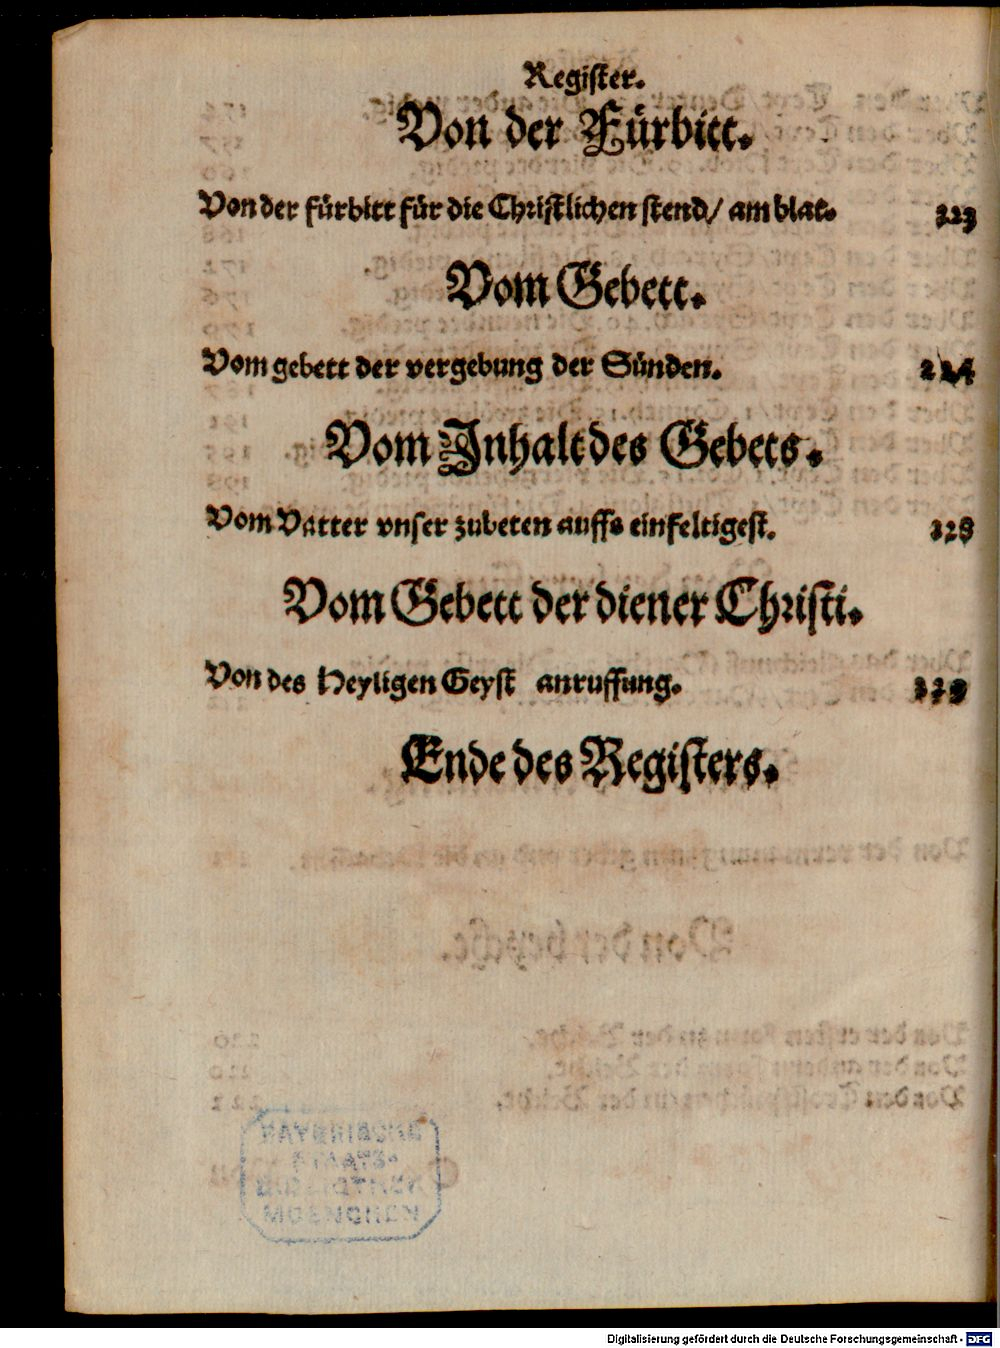 Register.
Von der Fürbitt.
Von der fürbitt für die Christlichen stend/ am blat. 223
Vom Gebett.
Vom gebett der vergebung der Sünden. 224
Vom Inhalt des Gebets.
Vom Vatter vnser zubeten auffs einfeltigest. 228
Vom Gebett der diener Christi.
Von des Heyligen Geyst anruffung. 229
Ende des Registers.
BAYERISCHE
STAATS-
BIBLIOTHEK
MUENCHEN
Digitalisierung gefördert durch die Deutsche Forschungsgemeinschaft - DFG